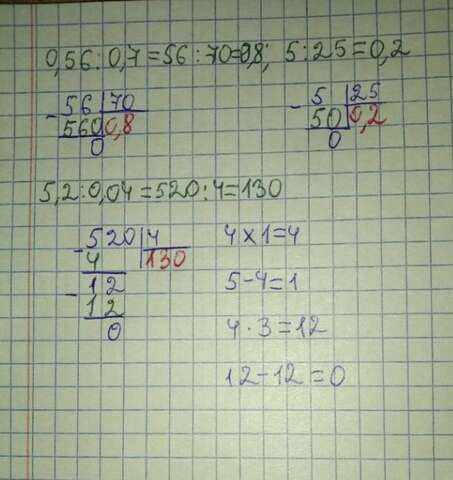 0,56:0,7=56:70=0,8; 5:25=0,2
-56|70
560|0,8
0
-5|25
50|0,2
0
5,2:0,04=520:4=130
-520|4
4|130
-12
12
0
4×1=4
5-4=1
4·3=12
12-12=0